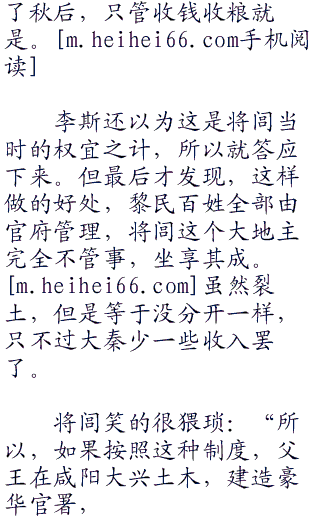 了秋后，只管收钱收粮就
是。[m.heihei66.com手机阅
读]
李斯还以为这是将闾当
时的权宜之计，所以就答应
下来。但最后才发现，这样
做的好处，黎民百姓全部由
官府管理，将闾这个大地主
完全不管事，坐享其成。
[m.heihei66.com]虽然裂
土，但是等于没分开一样，
只不过大秦少一些收入罢
了。
将闾笑的很猥琐：“所
以，如果按照这种制度，父
王在咸阳大兴土木，建造豪
华官署，